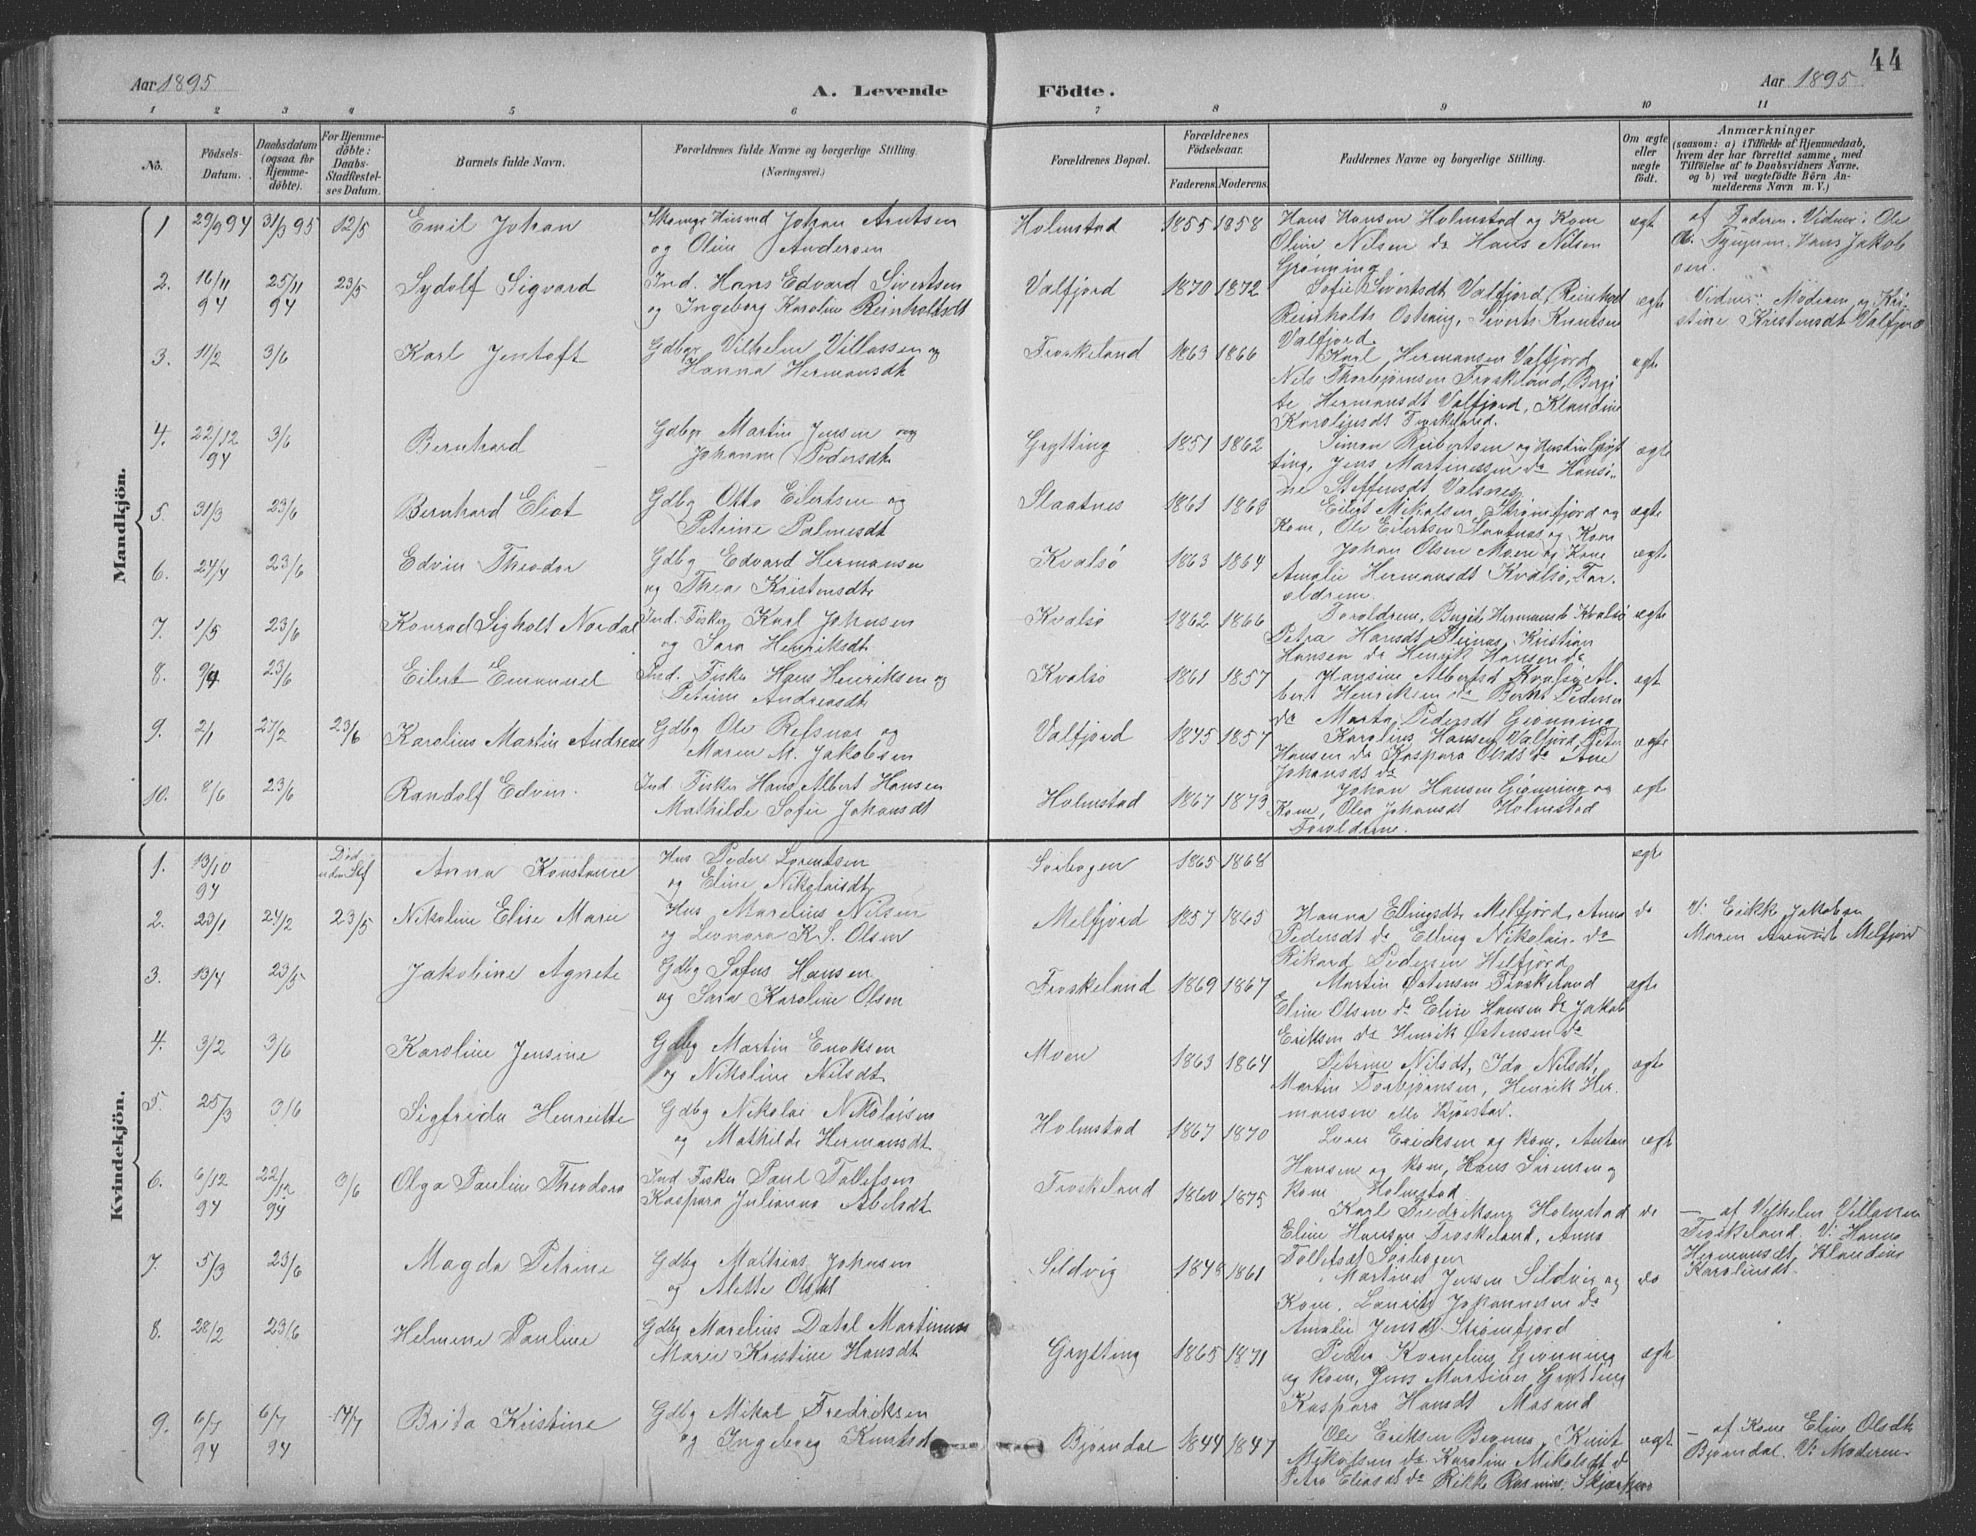 44
Aar 1895
A. Levende
Födte.
Aar 1895
1 2 3 4 5 6 7 8 9 10 11
No.
Födsels-
Datum.
Daabsdatum
(ogsaa for
Hjemme-
döbte).
For Hjemme-
döbte:
Daabs-
Stadfæstel-
ses Datum.
Barnets fulde Navn.
Forældrenes fulde Navne og borgerlige Stilling.
(Næringsvei.)
Forældrenes Bopæl.
Forældrenes
Födselsaar.
Faderens. Moderens.
Faddernes Navne og borgerlige Stilling.
Om ægte
eller
uægte
födt.
Anmærkninger
(saasom: a) i Tilfælde af Hjemmedaab,
hvem der har forrettet samme, med
Tilföielse af to Daabsvidners Navne,
og b) ved uægtefödte Börn An-
melderens Navn m. V.)
Mandkjön.
1 29/9 94 31/3 95 12/5 Emil Johan Johan Arntsen
og Oline Andersen
Holmstad 1855 1858 Hans Hansen Holmstad og Kone
Oline Nilsen do Hans Nilsen
Grønning
ægt af Faderen. Vidner: Ole
Hans Jakob
sen.
2. 16/11 94 25/11 94 23/5 Sydolf Sigvard Ind. Hans Edvard Sivertsen
og Ingeborg Karoline Reinholdsdt
Valfjord 1870 1872 Sofie Sivertsdt Valfjord, Reinholt
Reinholts Sivert Knutsen
Valfjord.
ægte Vidner: Moderen og Kri-
stine Kristensdt Valfjord
3. 11/2 3/6 Karl Jentoft Gdbgr Vilhelm Villassen og
Hanna Hermansdt
Froskeland 1863 1866 Karl Hermansen Valfjord,
Nils Thorbjørnsen Froskeland, Bergi-
te Hermansdt Valfjord, Klandine
Karolinsdt Froskeland.
ægte
4. 22/12 94 3/6 Bernhard Gdbgr Martin Jensen og
Johanne Pedersdt
Grytting 1851 1862 Simon Reibertsen og Hustru Gryt-
ting, Jens Martinessen do Hansi-
ne Steffensdt Valsnes
ægte
5. 31/3 23/6 Bernhard Eliot Gdbg Otto Eilertsen og
Petrine Palmesdt
Slaatnes 1861 1863 Eilert Mikalsen Strømfjord og
Kone, Ole Eilertsen Slaatnes og Kone
ægte
6. 24/4 23/6 Edvin Theodor Gdbg Edvard Hermansen
og Thea Kristensdt
Kvalsø 1863 1864 Johan Olsen Moen og Kone
Amalie Hermansdt Kvalsø, For-
ældrene.
ægte
7. 1/5 23/6 Konrad Sigholt Nordal Ind. Fisker Karl Johnsen
og Sara Henriksdt
Kvalsø 1862 1866 Forældrene, Bergite Hermansdt Kvalsø
Petra Hansdt Steinas, Kristian
Hansen do Henrik Hansen do
ægte
8. 9/4 23/6 Eilert Emanuel Ind. Fisker Hans Henriksen og
Petrine Andreasdt
Kvalsø 1861 1857 Hansine Albertsd Kvalsø, Al-
bert Henriksen do Berht Pedersen
do Marta Pedersdt Grønning
ægt
9. 2/1 27/2 23/6 Karolius Martin Andreas Gdbg Ole Refsnes og
Maren M. Jakobsen
Valfjord 1845 1857 Karolius Hansen Valfjord, Peter
Hansen do Kaspara Olsdt do Ane
Johansdt do
ægte
10. 8/6 23/6 Randolf Edvin. Ind. Fisker Hans Albert Hansen
Mathilde Sofie Johansdt
Holmstad 1867 1873 Johan Hansen Grønning og
Kone, Olea Johansdt Holmstad
Forældrene.
ægt
Kvindekjön.
1. 13/10 94 Død
uden Stf
Anna Konstance Hus Peder Lorentsen
og Eline Nikolaisdt
Sørbogen 1865 1868 ægte
2. 23/1 24/2 23/5 Nikoline Elise Marie Hus Marelius Nilsen
og Leonora K S. Olsen
Melfjord 1857 1865 Hanna Ellingsdt Melfjord, Anna
Pedersdt do Elling Nikolais. do
Rikard Pedersen Melfjord
do V: Erikke Jakobsen
Maren Melfjord
3. 13/4 23/5 Jakobine Agnete Gdbg Sofus Hansen
og Sara Karoline Olsen
Froskeland 1869 1867 Martin Østensen Froskeland
Eline Olsen do Elise Hansen do Jakob
Eriksen do Henrik Østensen do
ægte
4. 3/2 3/6 Karoline Jensine Gdbg Martin Enoksen
og Nikoline Nilsdt
Moen 1863 1864 Petrine Nilsdt, Ida Nilsdt,
Martin Torbjørnsen, Henrik Her-
mansen alle Kjørstad.
ægte
5. 25/3 3/6 Sigfrida Henriette Gdbg Nikolai Nikolaisen
og Mathilde Hermansdt
Holmstad 1867 1870 Lars Eriksen og kone, Anton
Hansen og kone, Hans Sørensen og
kone Holmstad
ægt
6. 6/12 94 22/12 94 3/6 Olga Pauline Theodora Ind Fisker Paul Tollefsen
Kaspara Julianna Abelsdt
Froskeland 1860 1875 Karl Fredriksen Holmstad
Eline Hansen Froskeland, Anna
Tollefsdt Sørbogen
do — af Vilhelm Villassen
Froskeland. V: Hanna
Hermansdt, Klandine
Karolinsdt.
7. 5/3 23/6 Magda Petrine Gdbg Mathias Johnsen
og Alette Olsdt
Sildvig 1848 1861 Martines Jensen Sildvig og
Kone, Lauritz Johannesen do
Amalie Jensdt Strømfjord
do
8. 28/2 23/6 Helmine Pauline Gdbg Marelius Datal Martinus
Marie Kristine Hansdt
Grytting 1865 1871 Peder Kornelius Grønning
og kone, Jens Martines Grytting
Kaspara Hansdt Masand
ægte
9. 6/7 94 6/7 94 14/7 Brita Kristine Gdbg Mikal Fredriksen
og Ingeborg Knutsd
Bjørndal 1844 1847 Ole Eriksen Knut
Mikalsen do Karoline Mikalsdt do
Petra Eliasdt do Rikke Rasmus.
ægt — af Kone Eline Olsdt
Bjørndal. V: Moderen